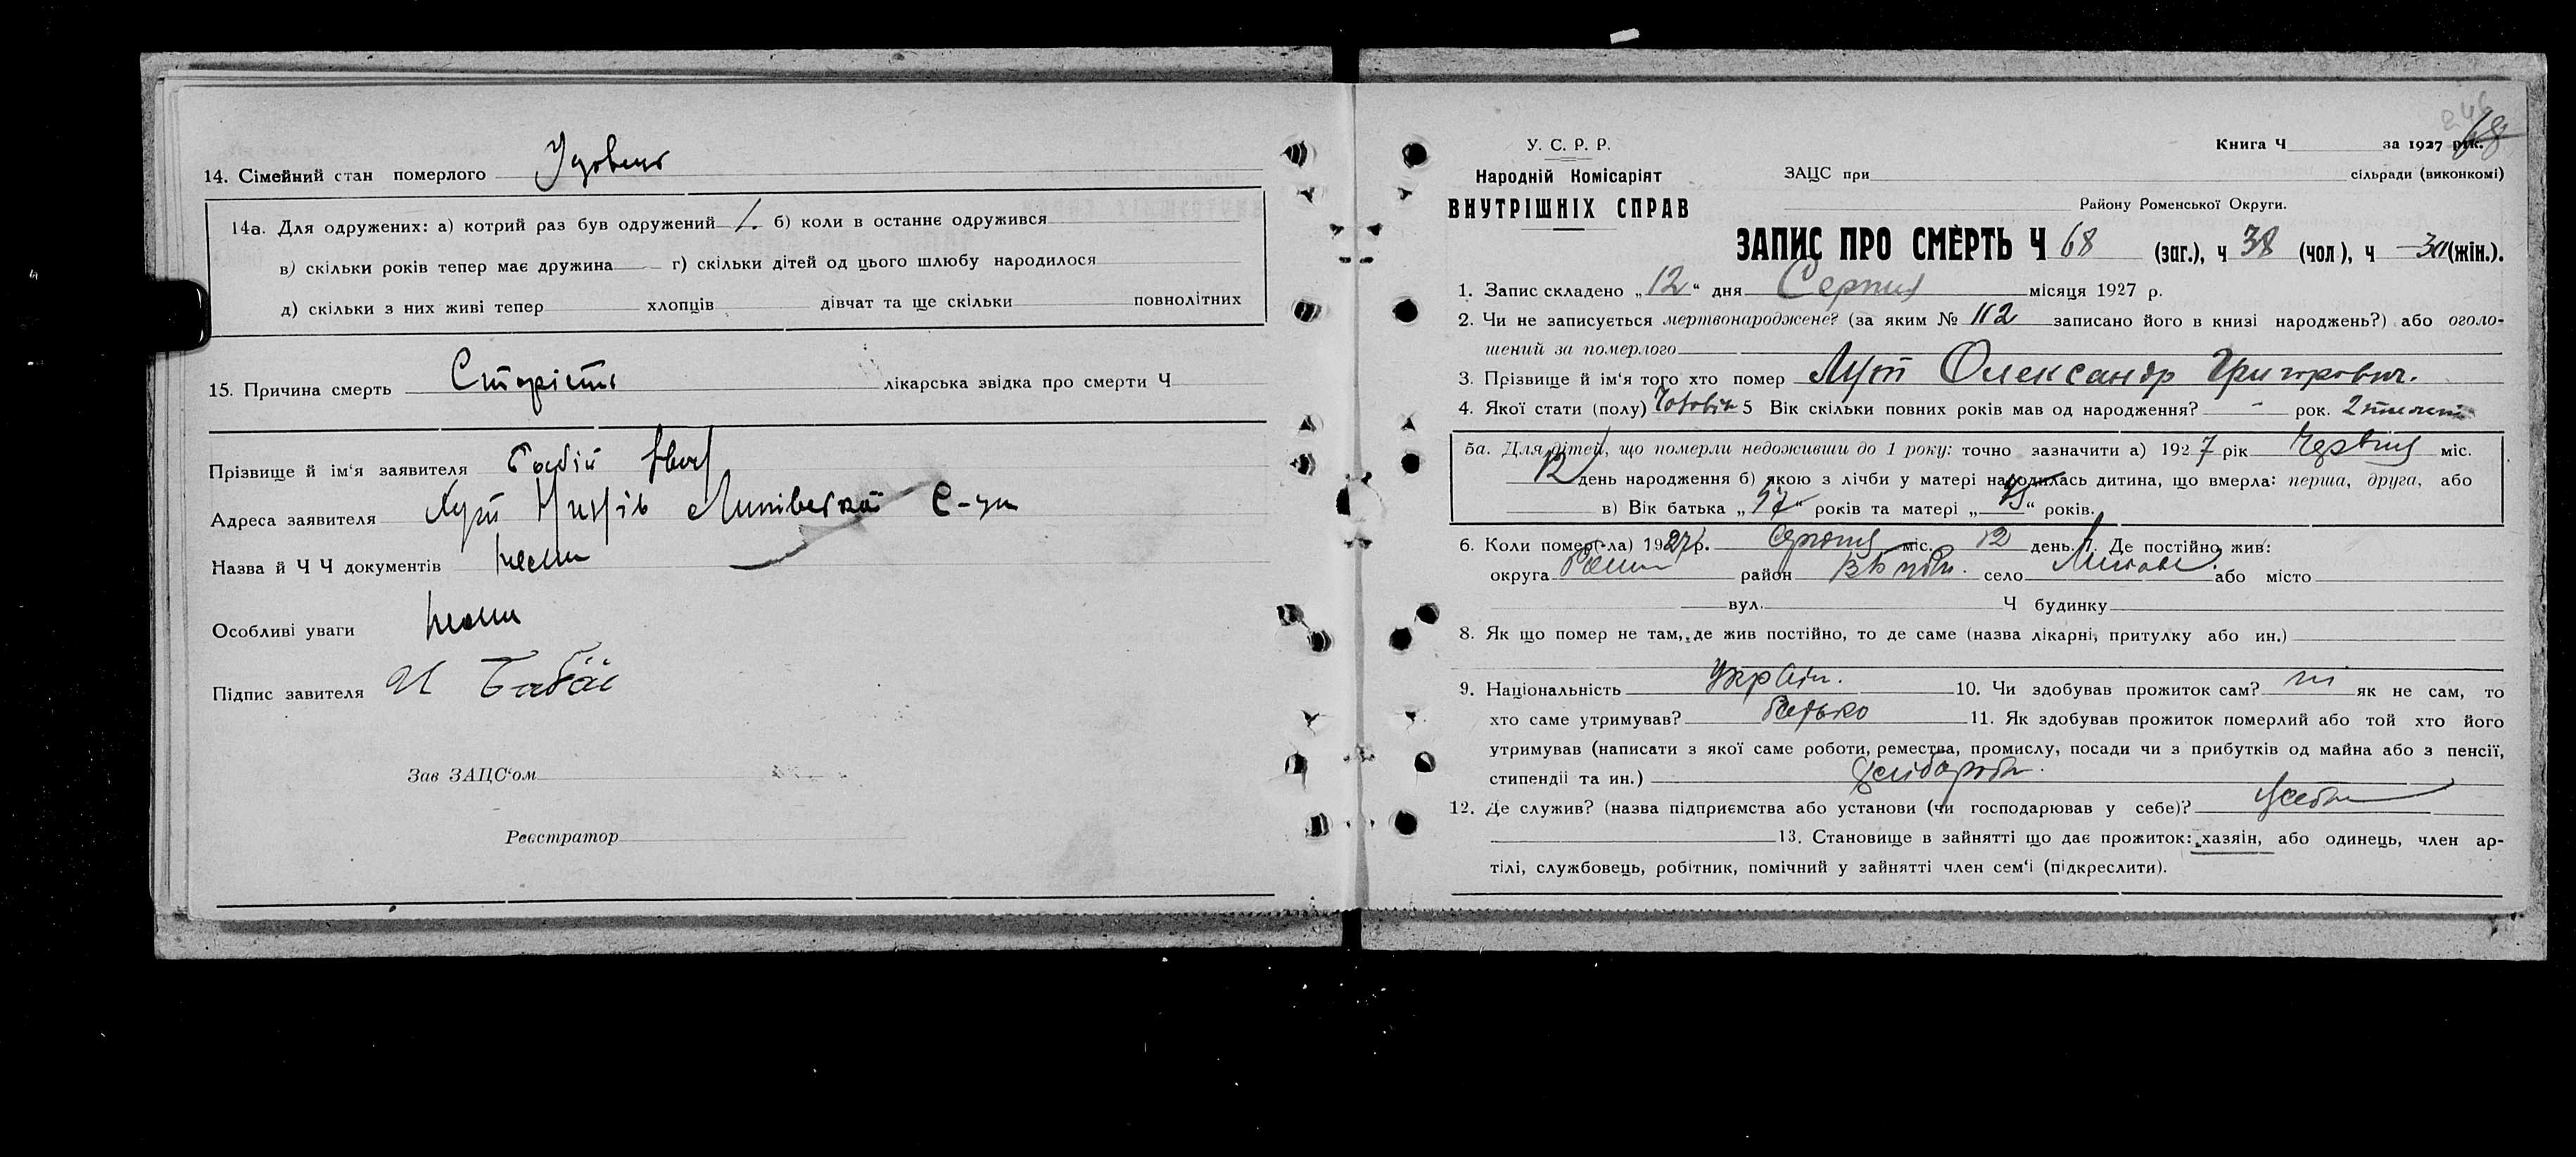 14. Сімейний стан померлого Удовець
14а. Для одружених: а) котрий раз був одружений 1. б) коли в останнє одружився
в) скільки років тепер має дружина — г) скільки дітей од цього шлюбу народилося
д) скільки з них живі тепер хлопців дівчат та ще скільки повнолітних
15. Причина смерть Старість лікарська звідка про смерти Ч
Прізвище й ім'я заявителя Бабій Іван
Адреса заявителя Хут Липівської С-ди
Назва й Ч Ч документів нема
Особливі уваги нема
Підпис завителя И Бабій
Зав ЗАЦС'ом
Реєстратор
246
68
У. С. Р. Р.
Книга Ч за 1927 рік.
Народній Комісаріят
ВНУТРІШНІХ СПРАВ
ЗАЦС при сільради (виконкомі)
Району Роменської Округи.
ЗАПИС ПРО СМЕРТЬ Ч 68 (заг.), ч 38 (чол), ч (жін.).
1. Запис складено „12“ дня Серпня місяця 1927 р.
2. Чи не записується мертвонароджене? (за яким № 112 записано його в книзі народжень?) або оголо-
шений за померлого
3. Прізвище й ім'я того хто помер Лут Олександр Григорович.
4. Якої стати (полу) Чоловік 5 Вік скільки повних років мав од народження? - рок. 2
5а. Для дітей, що померли недоживши до 1 року: точно зазначити а) 1927 рік Червня міс.
12 день народження б) якою з лічби у матері народилась дитина, що вмерла: перша, друга, або
в) Вік батька „ “ років та матері „ “ років.
6. Коли помер(-ла) 1927 р. Серпня міс. 12 день. 7. Де постійно жив:
округа Ромен район село або місто
вул. Ч будинку
8. Як що помер не там, де жив постійно, то де саме (назва лікарні, притулку або ин.)
9. Національність Україн. 10. Чи здобував прожиток сам? ні як не сам, то
хто саме утримував? батько 11. Як здобував прожиток померлий або той хто його
утримував (написати з якої саме роботи, ремества, промислу, посади чи з прибутків од майна або з пенсії,
стипендії та ин.) хліборобн.
12. Де служив? (назва підприємства або установи (чи господарював у себе)? у себе
13. Становище в зайнятті що дає прожиток: хазяін, або одинець, член ар-
тілі, службовець, робітник, помічний у зайнятті член сем'і (підкреслити).